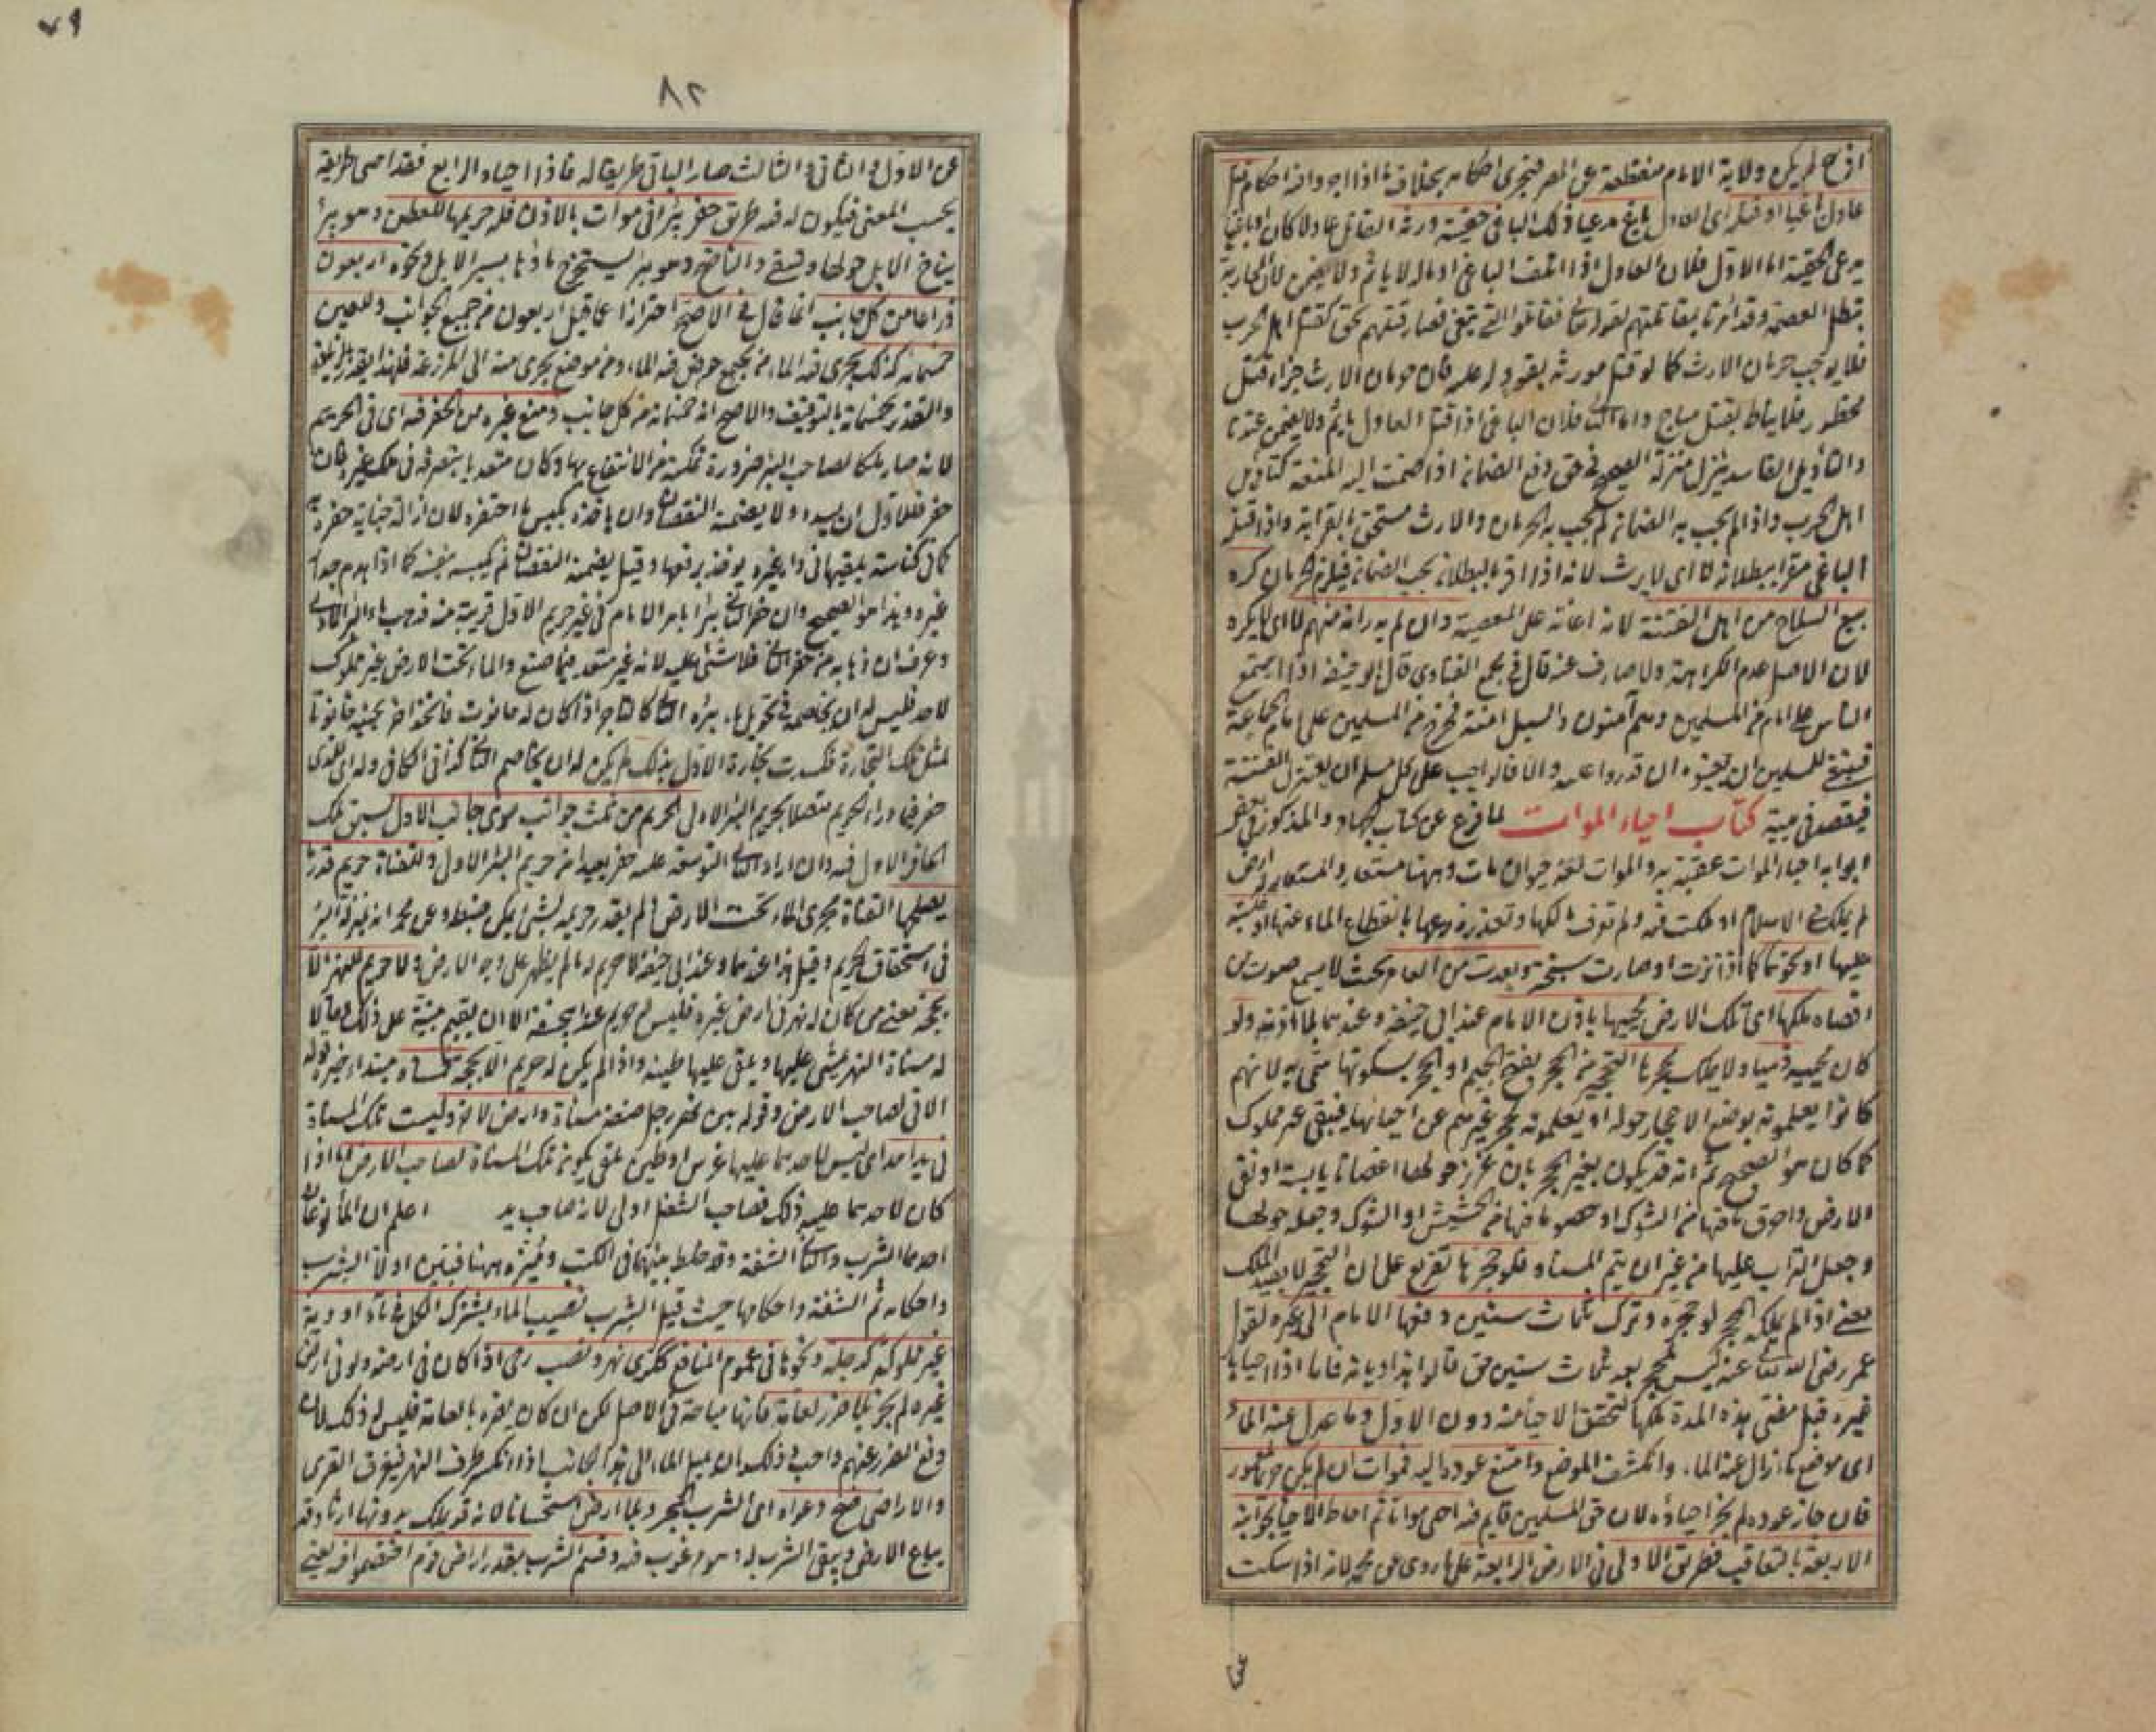 اذ ح لم يكن ولاية الامام منقطعة عن المصر فتجرى احكامه بخلاف ما اذا اجروا فيه احكامهم قتل
عادل باغيا او قتله اى العادل باغ مدعيا ذلك الباغى حقيته ورثه القاتل عادلا كان او باغيا
يدعى الحقية اما الاول فلان العادل اذا اتلف الباغى او ماله لا ياثم ولا يضمن لان المحاربة
تبطل العصمة وقد امرنا بمقاتلتهم لقوله تعالى فقاتلوا التى تبغى فصار قتلهم بحق كقتل اهل الحرب
فلا يوجب حرمان الارث كما لو قتل مورثه بقود له عليه فان حرمان الارث جزاء قتل
محظور فلا يناط بقتل مباح واما الثانى فلان الباغى اذا قتل العادل ياثم ولا يضمن عندنا
والتأويل الفاسد ينزل منزلة الصحيح فى حق دفع الضمان اذا ضمت اليه المنعة كتأويل
اهل الحرب واذا لم يجب به الضمان لم يجب به الحرمان والارث مستحق بالقرابة واذا قتل
الباغى مقرا ببطلانه لا اى لا يرث لانه اذا اقر بالبطلان يجب الضمان فيلزم الحرمان كره
بيع السلاح من اهل الفتنة لانه اعانة على المعصية وان لم يدر انه منهم لا اى لا يكره
لان الاصل عدم الكراهة ولا صارف عنه قال فى مجمع الفتاوى قال ابو حنيفة اذا اجتمع
الناس على امام من المسلمين وهم آمنون والسبل امنة فخرج من المسلمين على امام الجماعة
فينبغى للمسلمين ان يعينوه ان قدروا عليه والا فالواجب على كل مسلم ان يعتزل الفتنة
فيقعد فى بيته كتاب احياء الموات لما فرغ عن كتاب الجهاد والمذكور فى بعض
ابوابه احياء الموات عقبه به والموات لغة حيوان مات وههنا مستعار والمستعار له ارض
لم يملك فى الاسلام او ملكت فيه ولم تعرف مالكها وتعذر زرعها بانقطاع الماء عنها او غلبته
عليها او نحوهما كما اذا نزت او صارت سبخة وبعدت من العامر بحيث لا يسمع صوت من
اقصاه ملكها اى تلك الارض محييها باذن الامام عند ابى حنيفة وعندهما بلا اذنه ولو
كان محييه ذميا ولا يملك بحجرها التحجير من الحجر بفتح الجيم او الحجر بسكونها سمى به لانهم
كانوا يعلمونه بوضع الاحجار حوله او يعلمونه لحجر غيرهم عن احيائها فيبقى غير مملوك
كما كان هو الصحيح ثم انه قد يكون بغير الحجر بان غرز حولها اغصانا يابسة او نقى
الارض واحرق ما فيها من الشوك او حصد ما فيها من الحشيش او الشوك وجعله حولها
وجعل التراب عليها من غير ان يتم المسناة فلو حجرها تفريع على ان التحجير لا يفيد الملك
يعنى اذا لم يملكه الحجر لو حجره وترك ثلاث سنين دفعها الامام الى غيره لقول
عمر رضى الله تعالى عنه ليس لمحجر بعد ثلاث سنين حق قالوا هذا ديانة فاما اذا احياها
غيره قبل مضى هذه المدة ملكها لتحقق الاحياء منه دون الاول وما عدل عنه الماء
اى موضع ما زال عنه الماء وانكشف الموضع وامتنع عوده اليه فموات ان لم يكن حريما لعامر
فان جاز عوده لم يجز احياؤه لان حق المسلمين قايم فيه احيى مواتا ثم احاط الاحياء بجوانبه
الاربعة بالتعاقب فطريق الاول فى الارض الرابعة على ما روى عن محمد لانه اذا سكت
عن
٧٩
٨٢
عن الاول والثانى والثالث صار الباقى طريقا له فاذا احياه الرابع فقد احيى طريقه
بحسب المعنى فيكون له فيه طريق حفر بئرا فى موات بالاذن فله حريمها للعطن وهو بئر
يناخ الابل حولها وتسقى والناضح وهو بئر يستخرج ماؤها بسير الابل ونحوه اربعون
ذراعا من كل جانب انما قال فى الاصح احترازا عما قيل اربعون من جميع الجوانب وللعين
خمسمائة كذلك يجرى فيه الماء من مجمع حوض فيه الماء ومن موضع يجرى منه الى المزرعة فلهذا
والتقدير بخمسمائة بالتوقيف والاصح انه خمسمائة من كل جانب ومنع غيره من الحفر فيه اى فى الحريم
لانه صار ملكا لصاحب البئر ضرورة تمكنه من الانتفاع بها وكان متعديا بتصرفه فى ملك غيره فان
حفر فللاول ان يسده ولا يضمنه النقصان وان يأخذه بكبس ما احتفره لان ازالة جناية حفره به
كما فى كناسة يلقيها فى دار غيره يؤخذ برفعها وقيل يضمنه النقصان ثم يكبسه بنفسه كما اذا هدم جدار
غيره وهذا هو الصحيح وان حفر الثانى بئرا بامر الامام فى غير حريم الاول قريبة منه فذهب ماء البئر الاول
وعرف ان ذهابه من حفر الثانى فلا شئ عليه لانه غير متعد فيما صنع والماء تحت الارض غير مملوك
لاحد فليس له ان يخاصمه فى تحويل ماء بئره الثانى كالتاجر اذا كان له حانوت فاتخذ اخر بجنبه حانوتا
لمثل تلك التجارة فكسدت تجارة الاول بذلك لم يكن له ان يخاصم الثانى كذا فى الكافى وله اى للذى
حفر فيما وراء الحريم متصلا بحريم البئر الاول الحريم من ثلث جوانب سوى جانب الاول لسبق ملك
الحافر الاول فيه وان اراد الثانى التوسعة عليه حفر بعيدا من حريم البئر الاول وللقناة حريم قدر ما
يصلحها القناة مجرى الماء تحت الارض لم يقدر حريمه بشئ يمكن ضبطه وعن محمد انه بمنزلة البئر
فى استحقاق الحريم وقيل هذا عندهما وعند ابى حنيفة لا حريم له ما لم يظهر على وجه الارض ولا حريم للنهر الا
بحجة يعنى من كان له نهر فى ارض غيره فليس له حريم عند ابى حنيفة الا ان يقيم بينة على ذلك وقالا
له مسناة النهر يمشى عليها ويلقى عليها طينه واذا لم يكن له حريم الا بحجة فمسناة مبتداء خبره قوله
الاتى لصاحب الارض وقوله بين نهر رجل صفة مسناة وارض لاخر وليست تلك المسناة
فى يد احد اى ليس لاحدهما عليها غرس او طين ملقى يكون تلك المسناة لصاحب الارض اما اذا
كان لاحدهما عليه ذلك فصاحب الشغل اولى لانه صاحب يد اعلم ان الماء نوعان
احدهما الشرب والثانى الشفة وقد خلط بينهما فى الكتب وميزه ههنا فبين اولا الشرب
واحكامه ثم الشفة واحكامها حيث قيل الشرب نصيب الماء يشترك الكل فى ماء اودية
غير مملوكة كدجلة ونحوها فى عموم المنافع ككرى نهر ونصب رحى اذا كان فى ارضه ولو فى ارض
غيره لم يجز بلا ضرر لعامة فانها مباحة فى الاصل لكن ان كان يضر بالعامة فليس له ذلك لان
دفع الضرر عنهم واجب وذلك بان يميل الماء الى هذا الجانب اذا انكسر طرف النهر فيغرق القرى
والاراضى صح دعواه اى الشرب المجرد بلا ارض استحسانا لانه قد يملك بدونها ارثا وقد
يباع الارض ويبقى الشرب له وهو مرغوب فيه وقسم الشرب بقدر اراضى قوم اختصموا فيه يعنى